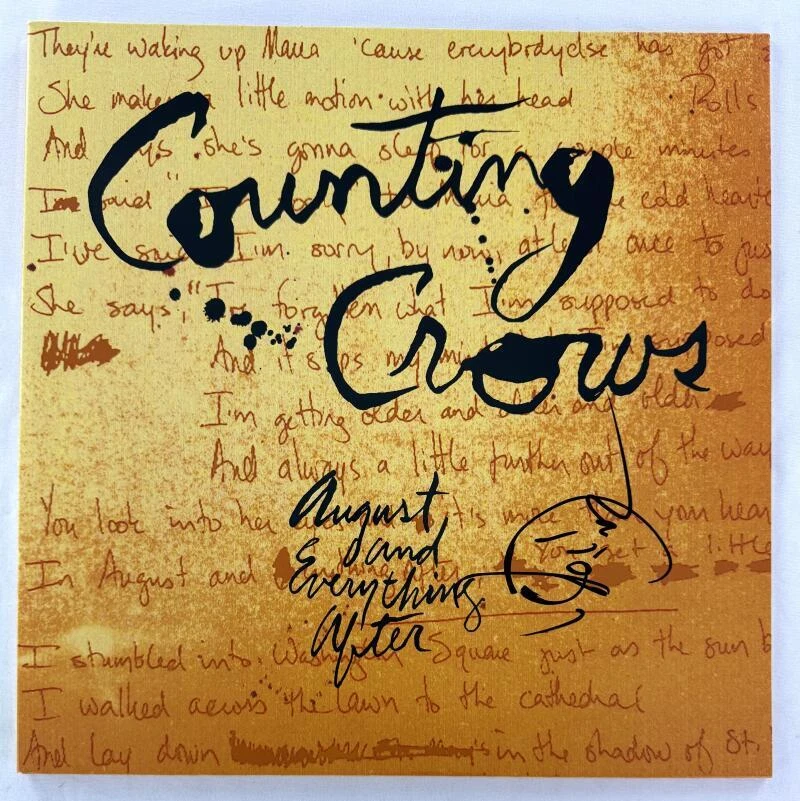 They're waking up Maria 'cause everybodyelse has got
She makes a little motion with her head Rolls
And says she's gonna sleep for a couple minutes
I said "I'm to Maria for the cold
I've said I'm sorry, by now, at least once to jus
She says, "I've forgotten what I'm supposed to do
And it slips my mind I'm supposed
I'm getting older and older and older
And always a little further out of the way
You look into her it's more than your hear
In August and Everything After You get a little
I stumbled into Washington Square just as the sun b
I walked across the lawn to the cathedral
And lay down in the shadow of St.
Counting
Crows
August
and
Everything
After